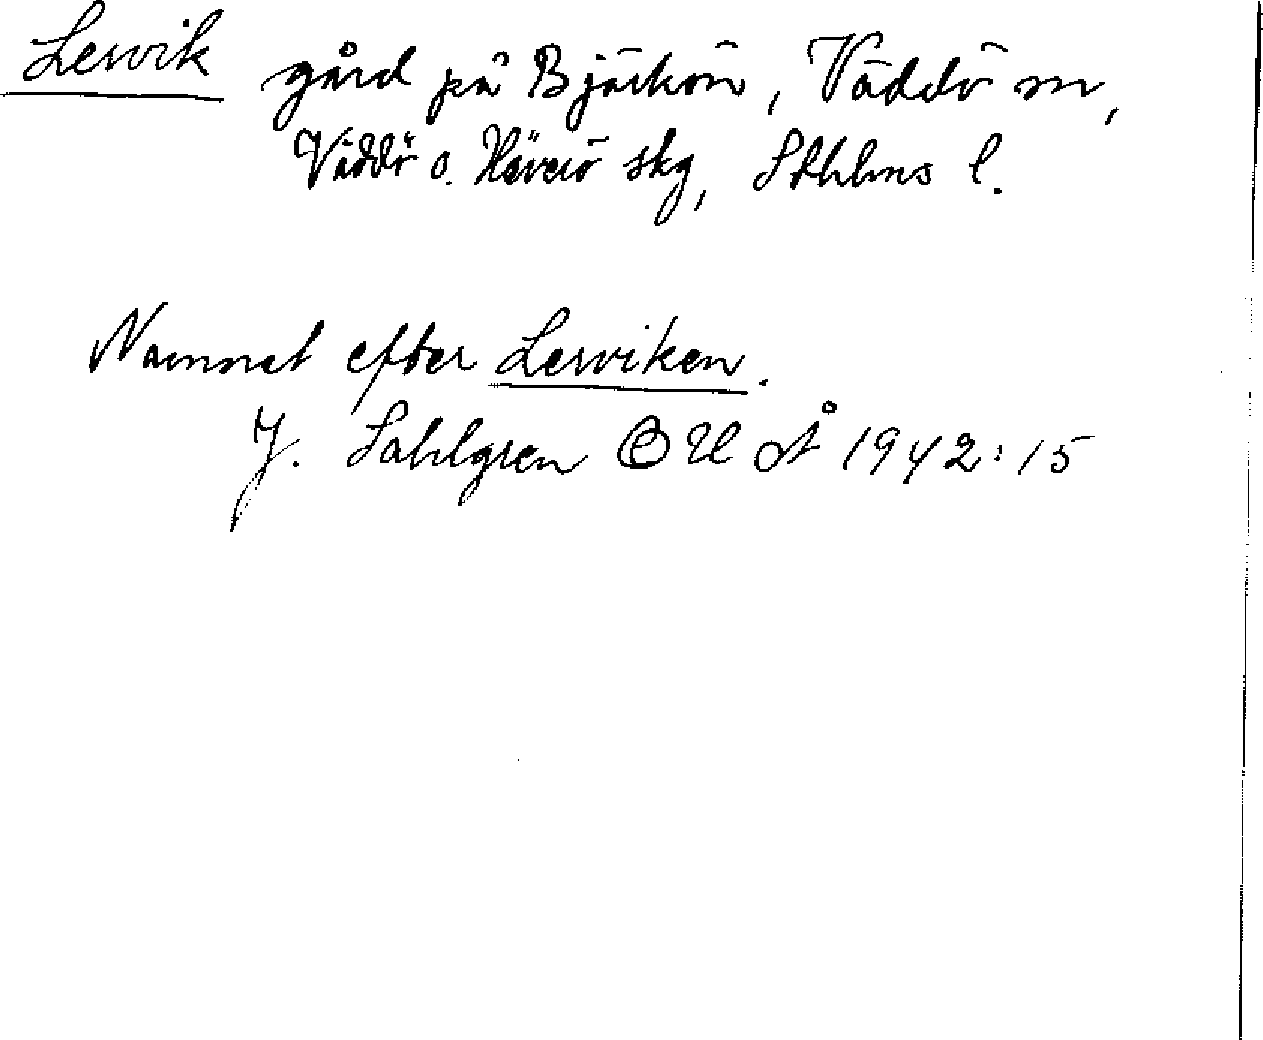 Lervik gård på Björkön, Väddö sn,
Väddö o. Häverö skg, Sthlms l.
Namnet efter Lerviken.
J. Sahlgren OUÅ 1942:15